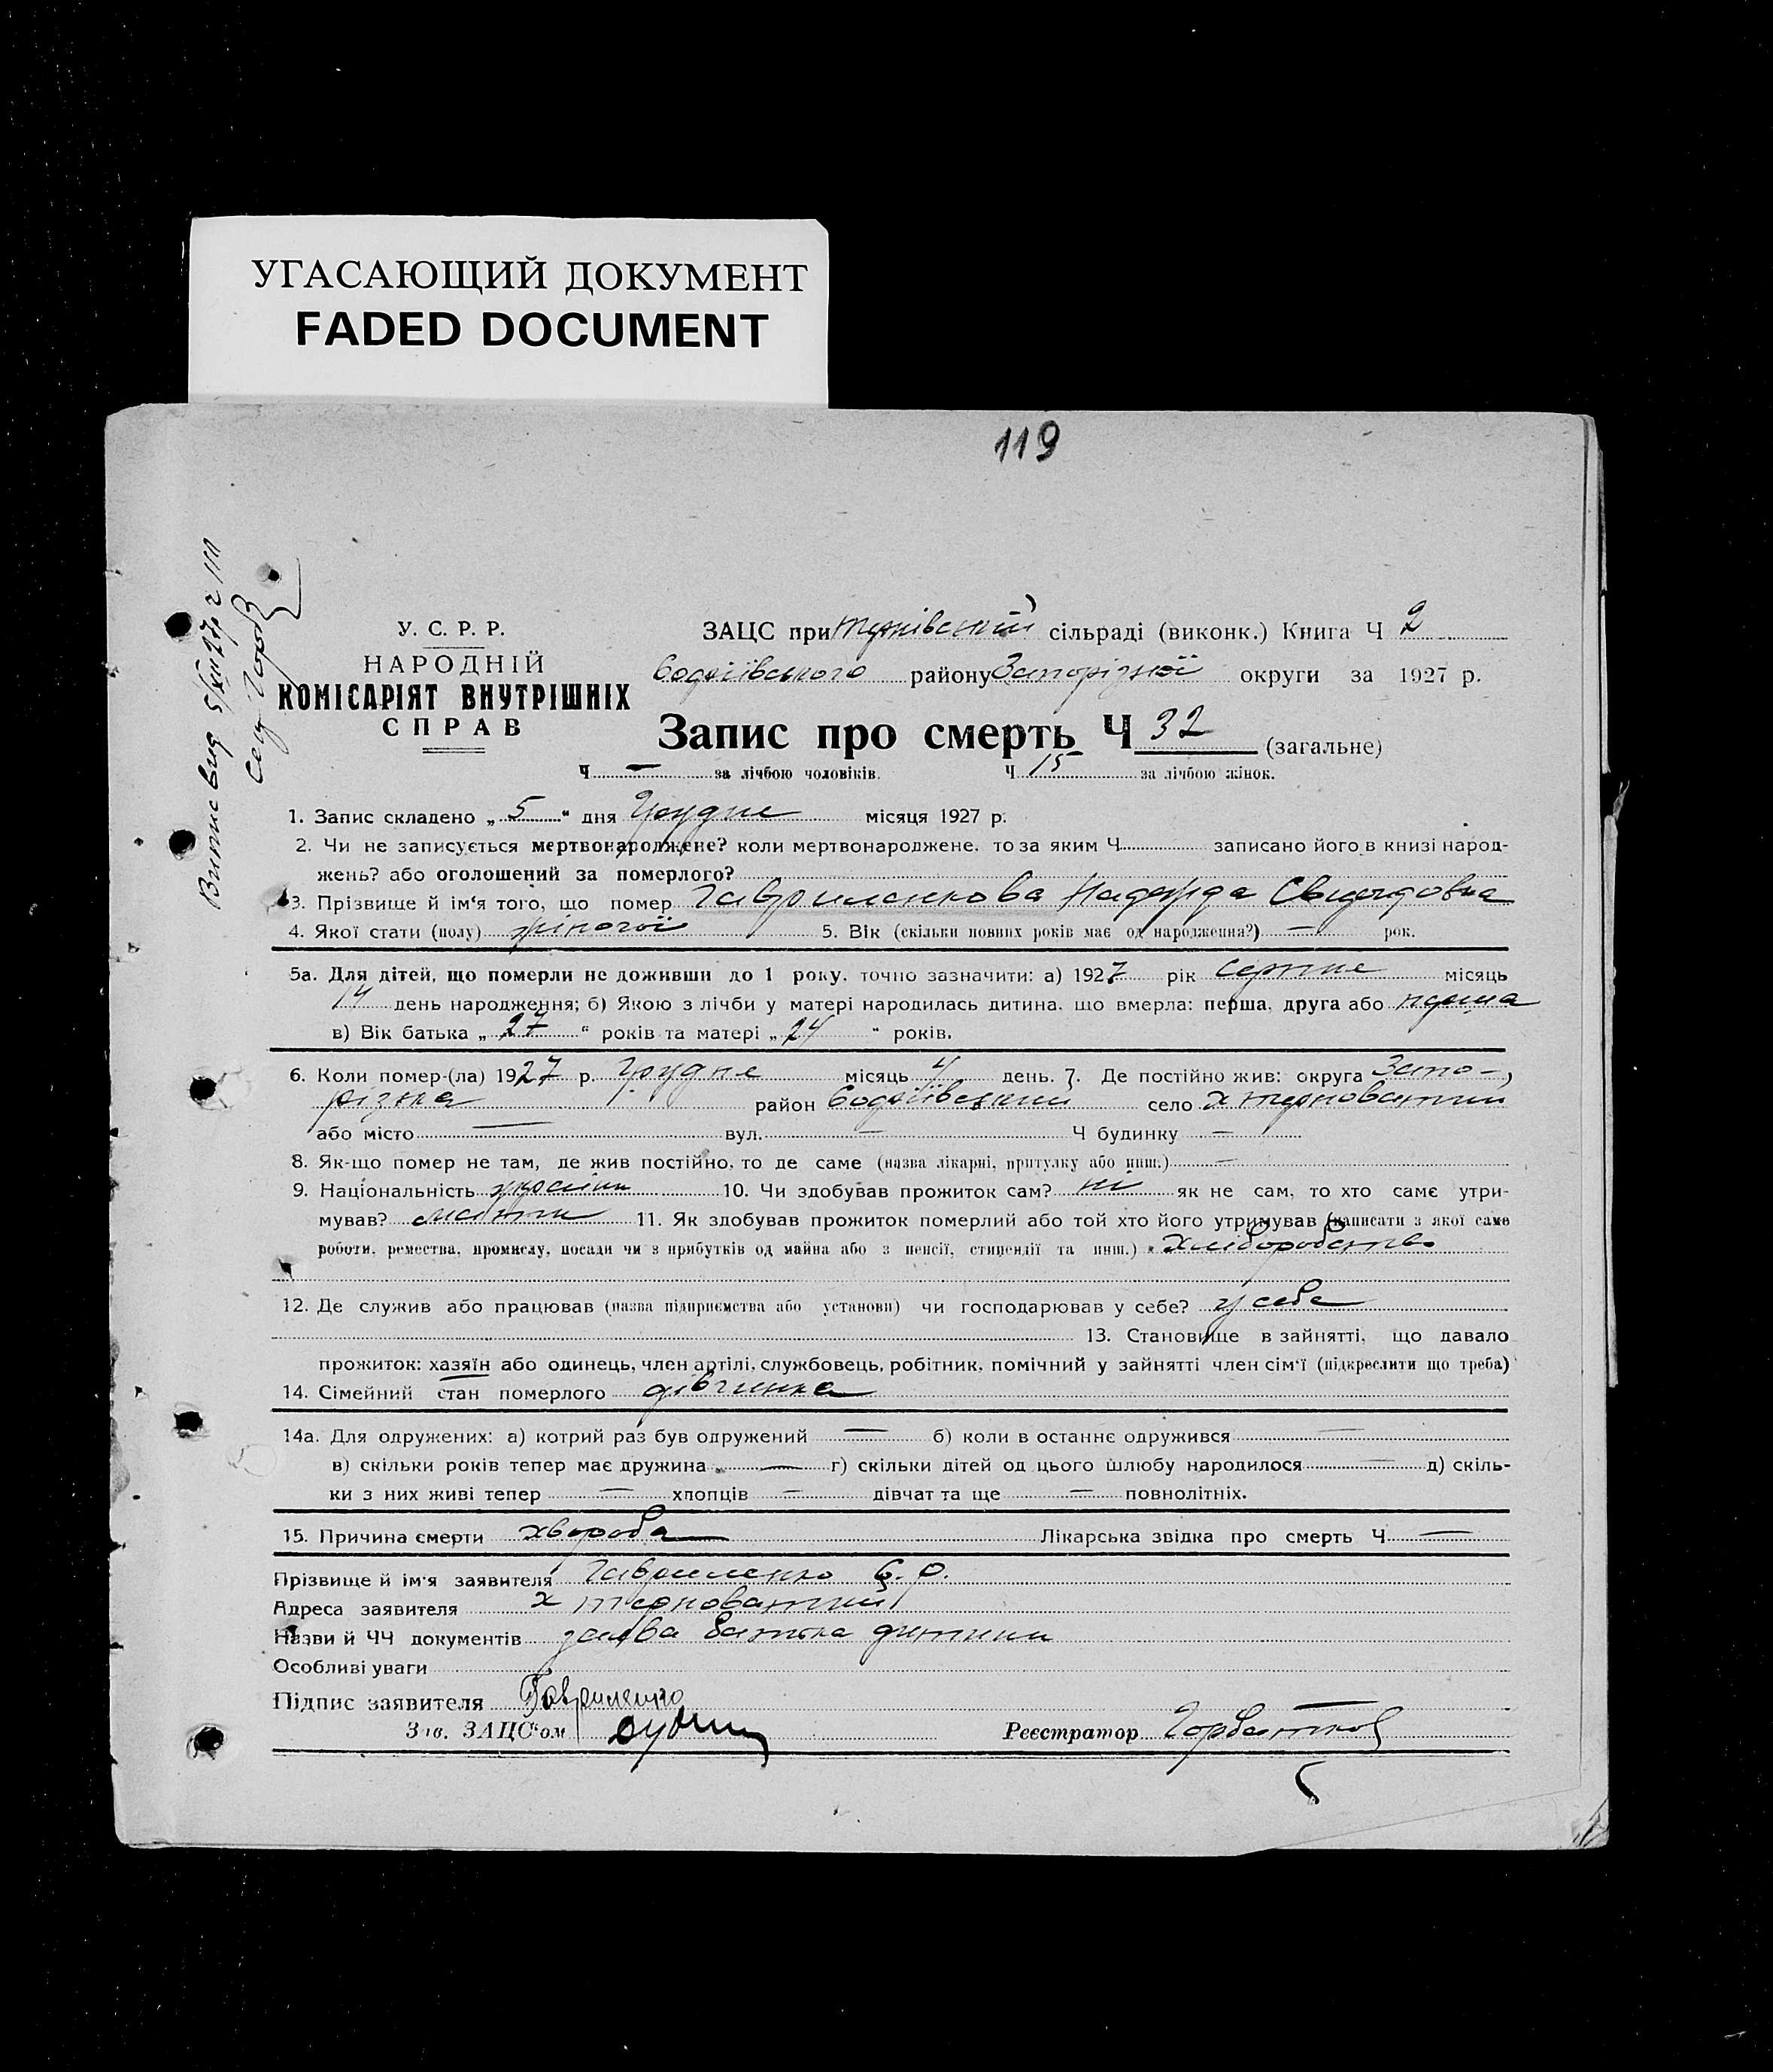 УГАСАЮЩИЙ ДОКУМЕНТ
FADED DOCUMENT
119
У. С. Р. Р.
НАРОДНІЙ
КОМІСАРІЯТ ВНУТРІШНІХ
СПРАВ
ЗАЦС при сільраді (виконк.) Книга Ч 2
району Запорізької округи за 1927 р.
Запис про смерть Ч 32 (загальне)
Ч — за лічбою чоловіків. Ч 15 за лічбою жінок.
1. Запис складено „ 5 “ дня Грудне місяця 1927 р.
2. Чи не записується мертвонароджене? коли мертвонароджене, то за яким Ч записано його в книзі народ-
жень? або оголошений за померлого?
3. Прізвище й ім‘я того, що помер Гавриленкова Надежда
4. Якої статі (полу) жіночої 5. Вік (скільки повних років має од народження?) — рок.
5а. Для дітей, що померли не доживши до 1 року, точно зазначити: а) 1927 рік Серпне місяць
14 день народження; б) Якою з лічби у матері народилась дитина, що вмерла: перша, друга або перша
в) Вік батька „ 27 “ років та матері „ 24 “ років.
6. Коли помер-(ла) 1927 р. Грудне місяць 4 день. 7. Де постійно жив: округа Запо-
різька район село х Терноватий
або місто — вул. — Ч будинку —
8. Як-що помер не там, де жив постійно, то де саме (назва лікарні, притулку або инш.) —
9. Національність 10. Чи здобував прожиток сам? ні як не сам, то хто саме утри-
мував? 11. Як здобував прожиток померлий або той хто його утримував (написати з якої саме
роботи, ремества, промислу, посади чи з прибутків од майна або з пенсії, стипендії та инш.) Хліборобство
12. Де служив або працював (назва підприємства або установи) чи господарював у себе? у себе
13. Становище в зайнятті, що давало
прожиток: хазяїн або одинець, член артілі, службовець, робітник, помічний у зайнятті член сім‘ї (підкреслити що треба)
14. Сімейний стан померлого дівчинка
14а. Для одружених: а) котрий раз був одружений — б) коли в останнє одружився —
в) скільки років тепер має дружина — г) скільки дітей од цього шлюбу народилося — д) скіль-
ки з них живі тепер — хлопців — дівчат та ще — повнолітніх.
15. Причина смерти хвороба Лікарська звідка про смерть Ч —
Прізвище й ім‘я заявителя Гавриленко
Адреса заявителя х Терноватий
Назви й ЧЧ документів заява батька дитини
Особливі уваги
Підпис заявителя Гавриленко
Зав. ЗАЦС‘ом Реєстратор